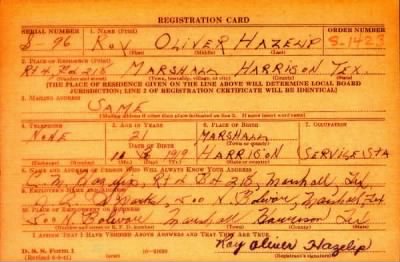 REGISTRATION CARD
SERIAL NUMBER 1. NAME (Print) ORDER NUMBER
S-96 Roy OLIVER HAZELIP S-1423
(First) (Middle) (Last)
2. PLACE OF RESIDENCE (Print)
Rt 4, Bx 218 MARSHALL HARRISON TEX.
(Number and street) (Town, township, village, or city) (County) (State)
[THE PLACE OF RESIDENCE GIVEN ON THE LINE ABOVE WILL DETERMINE LOCAL BOARD
JURISDICTION; LINE 2 OF REGISTRATION CERTIFICATE WILL BE IDENTICAL]
3. MAILING ADDRESS
SAME
[Mailing address if other than place indicated on line 2. If same insert word same]
4. TELEPHONE 5. AGE IN YEARS 6. PLACE OF BIRTH 7. OCCUPATION
NONE 21 MARSHALL
DATE OF BIRTH (Town or county)
10 1919 HARRISON SERVICE STA
(Exchange) (Number) (Mo.) (Day) (Yr.) (State or country)
8. NAME AND ADDRESS OF PERSON WHO WILL ALWAYS KNOW YOUR ADDRESS
Rt 4 Bx 218, Marshall, Tex
9. EMPLOYER'S NAME AND ADDRESS
Marshall, Tex
10. PLACE OF EMPLOYMENT OR BUSINESS
Marshall Tex
(Number and street or R. F. D. number) (Town) (County) (State)
I AFFIRM THAT I HAVE VERIFIED ABOVE ANSWERS AND THAT THEY ARE TRUE.
D. S. S. Form 1 Roy Oliver Hazelip
(Registrant's signature)